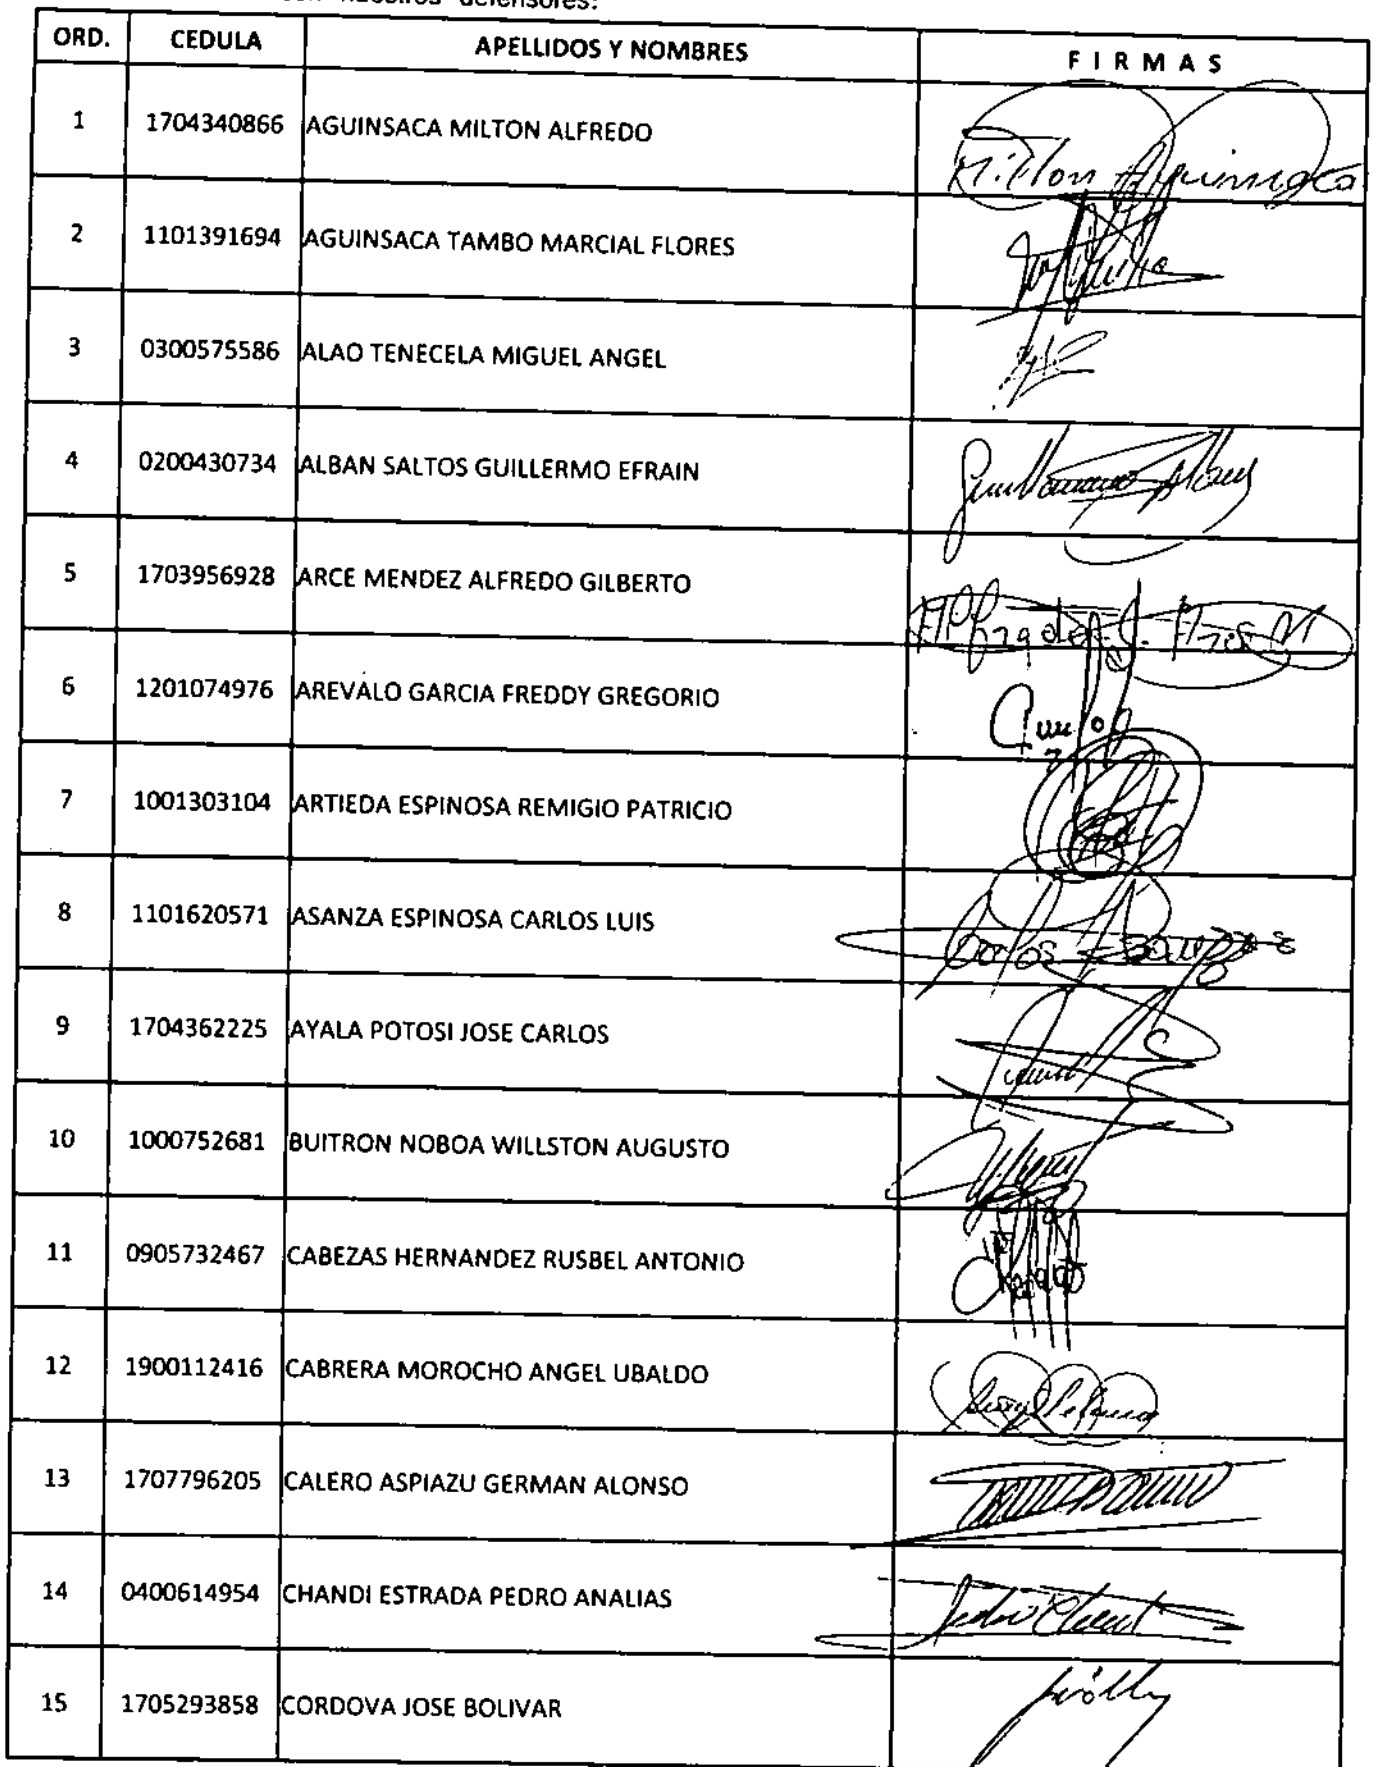 nuestros defensores:
ORD. CEDULA APELLIDOS Y NOMBRES F I R M A S
1 1704340866 AGUINSACA MILTON ALFREDO Milton
2 1101391694 AGUINSACA TAMBO MARCIAL FLORES
3 0300575586 ALAO TENECELA MIGUEL ANGEL
4 0200430734 ALBAN SALTOS GUILLERMO EFRAIN
5 1703956928 ARCE MENDEZ ALFREDO GILBERTO
6 1201074976 AREVALO GARCIA FREDDY GREGORIO
7 1001303104 ARTIEDA ESPINOSA REMIGIO PATRICIO
8 1101620571 ASANZA ESPINOSA CARLOS LUIS
9 1704362225 AYALA POTOSI JOSE CARLOS
10 1000752681 BUITRON NOBOA WILLSTON AUGUSTO
11 0905732467 CABEZAS HERNANDEZ RUSBEL ANTONIO
12 1900112416 CABRERA MOROCHO ANGEL UBALDO
13 1707796205 CALERO ASPIAZU GERMAN ALONSO
14 0400614954 CHANDI ESTRADA PEDRO ANALIAS
15 1705293858 CORDOVA JOSE BOLIVAR